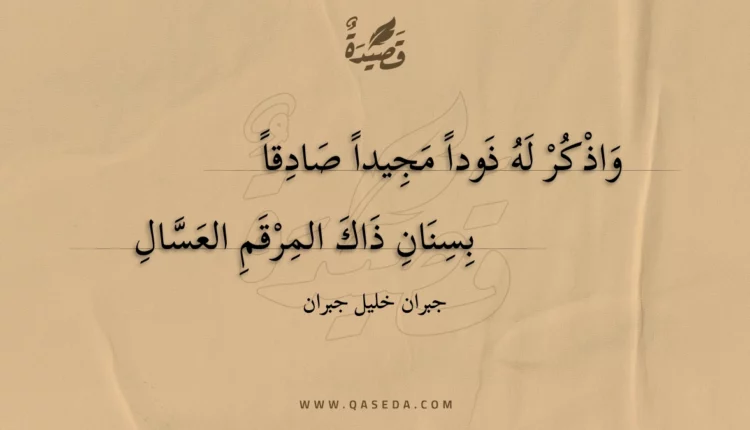 قَصِيدَةٌ
وَاذْكُرْ لَهُ ذَوداً مَجِيداً صَادِقاً
بِسِنَانِ ذَاكَ المِرْقَمِ العَسَّالِ
جبران خليل جبران
WWW.QASEDA.COM